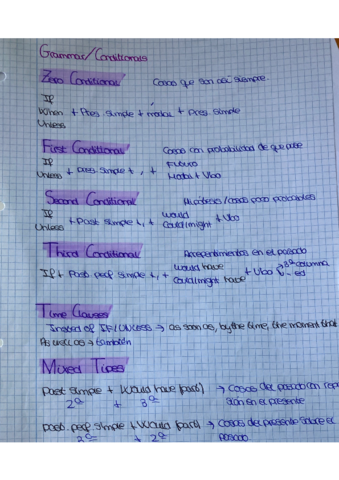 Grammar/Conditionals
Zero Conditional/ Cosas que son así siempre.
If
When + Pres. Simple + modal + Pres. simple
Unless
First Conditional/ Cosas con probabilidad de que pase
If Futuro
Unless + pres. simple + , + Modal + Vbo
Second Conditional Hipótesis/cosas poco probables
If would
Unless + Past simple + , + Could/might + Vbo
Third Conditional Arrepentimientos en el pasado
If + Past perf simple + , + would have + Vbo 3ª columna
Could/might have - ed
Time Clauses
Instead of IF/UNLESS → as soon as, by the time, the moment that
As well as → también
Mixed Types
Past simple + Would have (past) → Cosas del pasado con reper
2ª + 3ª sión en el presente
past. perf simple + Would (past) → Cosas del presente sobre el
3ª + 2ª pasado